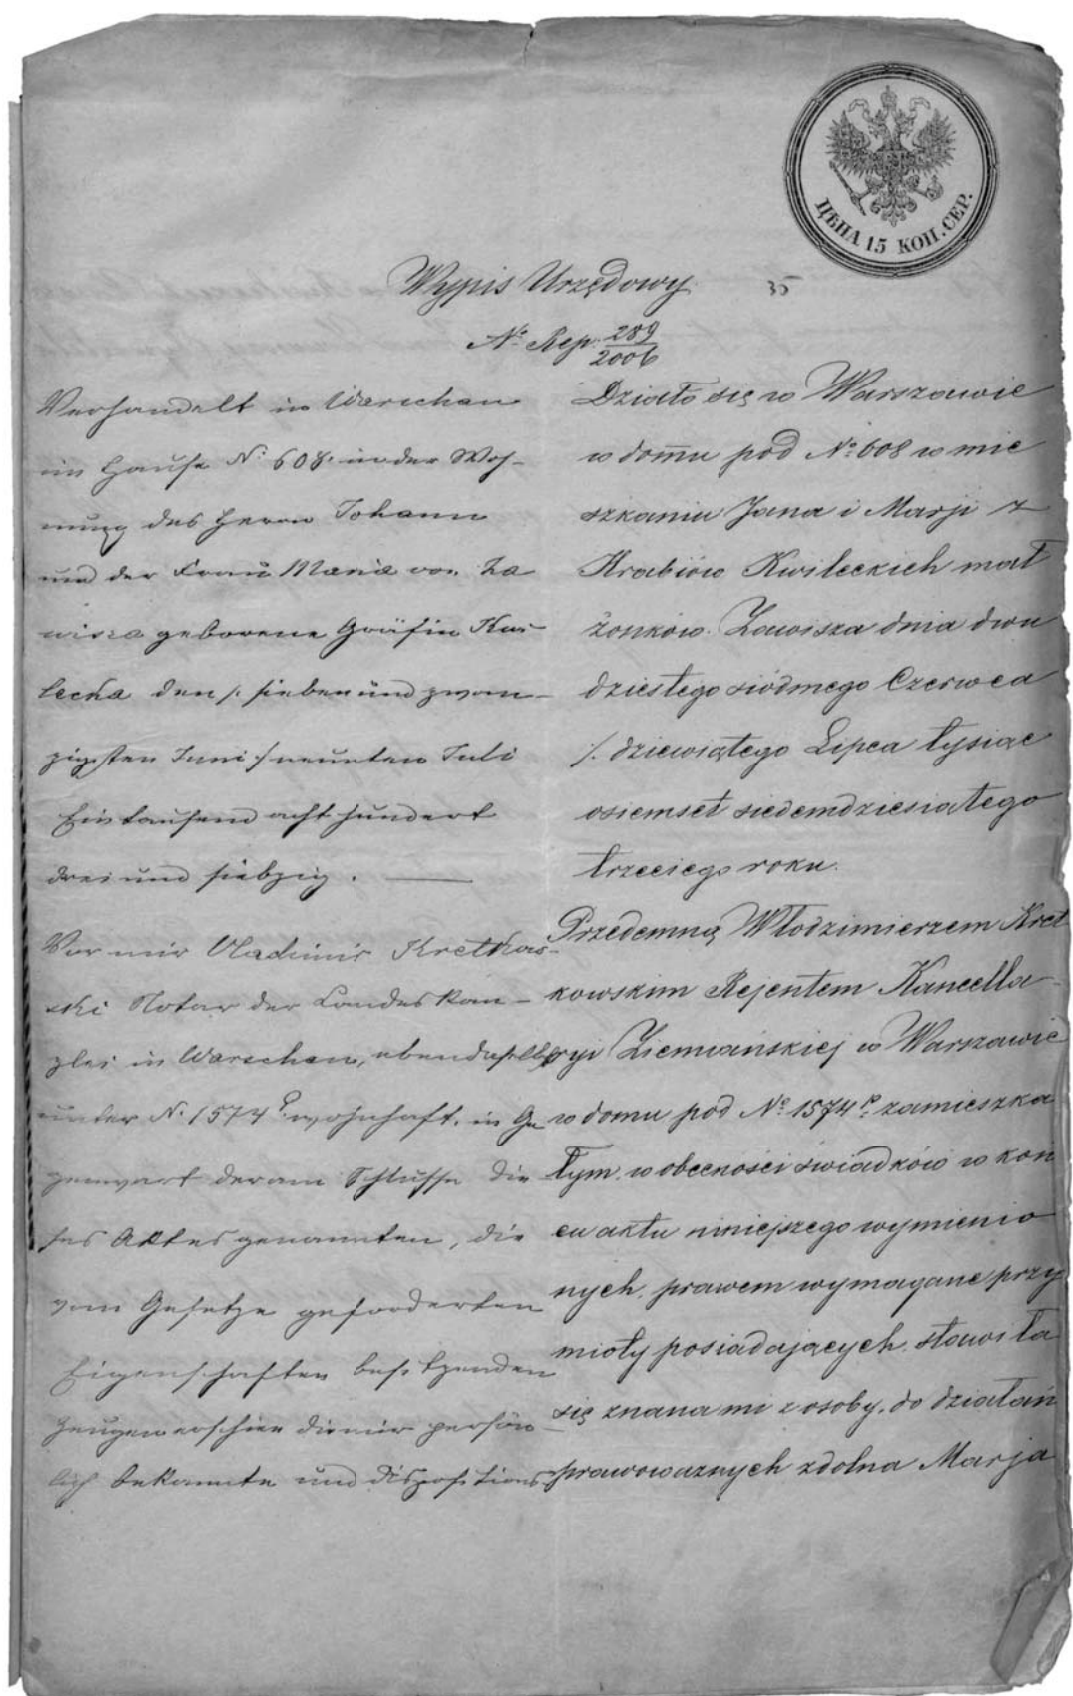 ЦѢНА 15 КОП. СЕР.
Wypis Urzędowy
35
No Rep. 289/2006
Verhandelt in Warschau
im Hause No 608 in der Woh-
nung des Herrn Johann
und der Frau Maria von Za
wisza geborene Gräfin Kwi-
lecka den /: sieben und zwan-
zigsten Juni :/ neunten Juli
Eintausend acht hundert
drei und siebzig. —
Vor mir Vladimir Kretkow-
ski Notar der Landeskan-
zlei in Warschau, ebendaselbst
unter No 1574 wohnhaft, in Ge
genwart der am Schlusse die
ses Aktes genannten, die
vom Gesetze geforderten
Eigenschaften besitzenden
Zeugen erschien die mir persön-
lich bekannte und dispositions-
Działo się w Warszawie
w domu pod No 608 w mie
szkaniu Jana i Marji z
Hrabiów Kwileckich mał
żonków Zawisza dnia dwu
dziestego siódmego Czerwca
/: dziewiątego Lipca tysiąc
osiemset siedemdziesiątego
trzeciego roku.
Przedemną Włodzimierzem Kret
kowskim Rejentem Kancella-
ryi Ziemiańskiej w Warszawie
w domu pod No 1574 zamieszka
łym, w obecności świadków w koń
cu aktu niniejszego wymienio
nych, prawem wymagane przy
mioty posiadających, stawiła
się znana mi z osoby, do działań
prawoważnych zdolna Marja